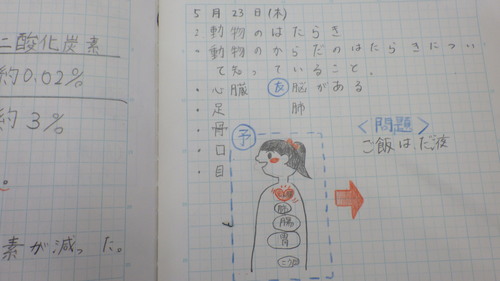 二酸化炭素
約0.02%
約3%
素が減った。
5月23日(木)
:動物のはたらき
-動物のからだのはたらきについ
て知っていること。
・心臓 友 脳がある
・足 肺
・骨
・口
・目
予
腸
胃
<問題>
ご飯は、だ液